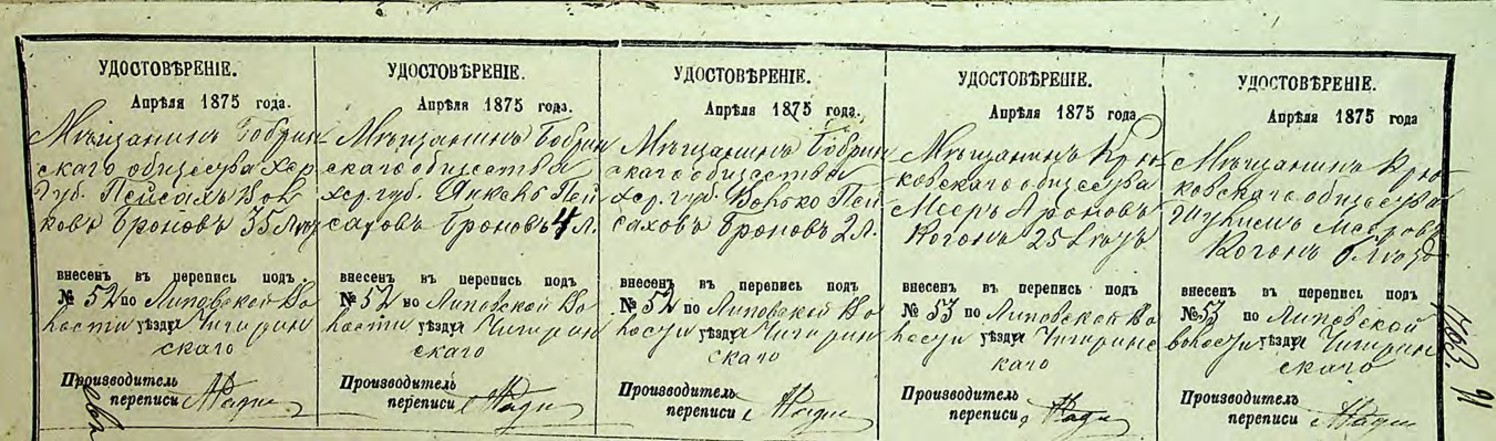 УДОСТОВѢРЕНІЕ.
Апрѣля 1875 года.
Мѣщанинъ Бобрин
скаго общества Хер
Губ. Пейсахъ Вол
ковъ Броновъ 35 лѣтъ
внесенъ въ перепись подъ
№ 52 по Липовской Во
лости уѣзда Чигирин
скаго
Производитель
переписи
УДОСТОВѢРЕНІЕ.
Апрѣля 1875 года.
Мѣщанинъ Бобрин
скаго общества
хер. губ. Янкель Пей
саховъ Броновъ 4 л.
внесенъ въ перепись подъ
№ 52 по Липовской Во
лости уѣзда Чигирин
скаго
Производитель
переписи
УДОСТОВѢРЕНІЕ.
Апрѣля 1875 года.
Мѣщанинъ Бобрин
скаго общества
хер. губ. Волько Пей
саховъ Броновъ 2 л.
внесенъ въ перепись подъ
№ 52 по Липовской Во
лости уѣзда Чигирин
скаго
Производитель
переписи
УДОСТОВѢРЕНІЕ.
Апрѣля 1875 года
Мѣщанинъ Крю
ковскаго общества
Мееръ Ароновъ
Когонъ 25 лѣтъ
внесенъ въ перепись подъ
№ 53 по Липовской Во
лости уѣзда Чигиринс
каго
Производитель
переписи
УДОСТОВѢРЕНІЕ.
Апрѣля 1875 года
Мѣщанинъ Крю
ковскаго общества
Мееровъ
Когонъ 6 лѣтъ
внесенъ въ перепись подъ
№ 53 по Липовской
волости уѣзда Чигирин
скаго
Производитель
переписи
91